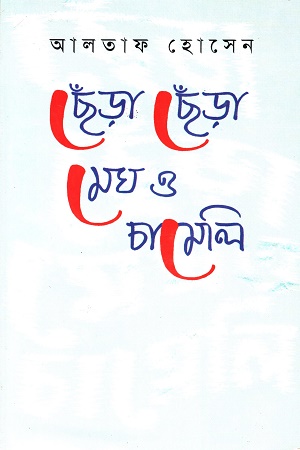 আলতাফ হোসেন
ছেঁড়া ছেঁড়া
মেঘ ও
চামেলি